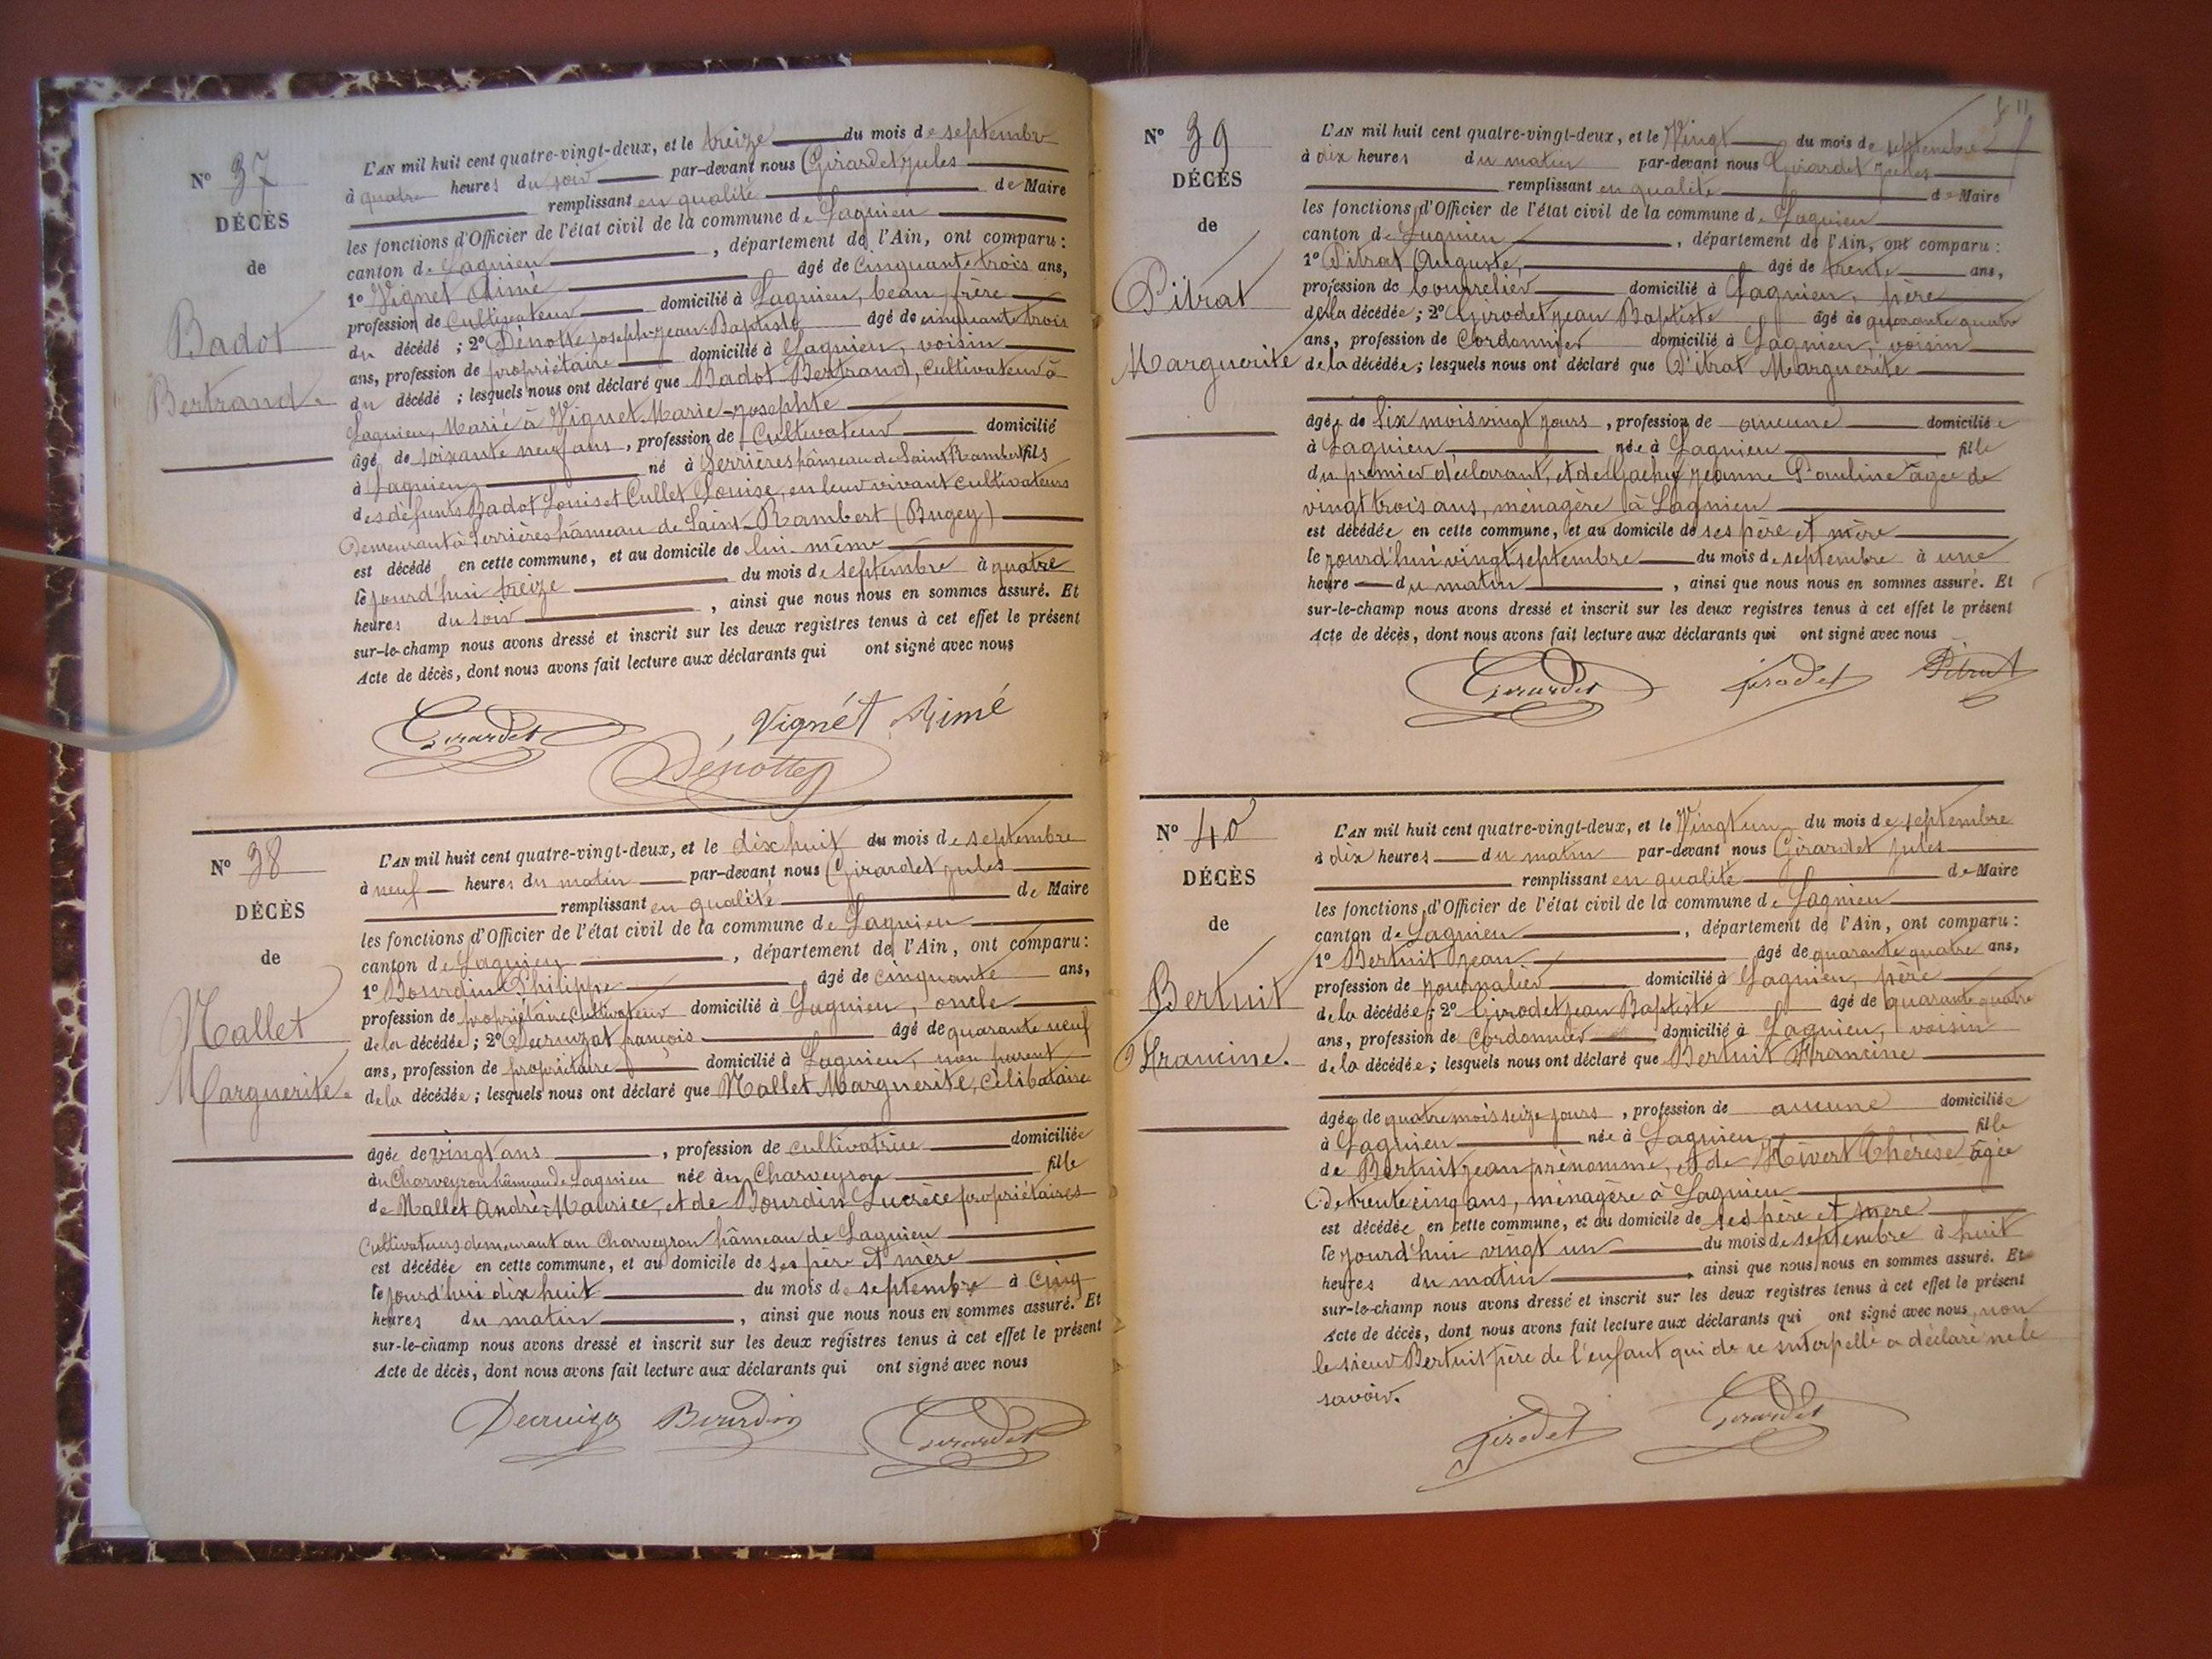 N° 37
DÉCÈS
de
Badot
Bertrand.
L'AN mil huit cent quatre-vingt-deux, et le treize du mois de septembre
à quatre heures du soir par-devant nous Girardet Jules
remplissant en qualité de Maire
les fonctions d'Officier de l'état civil de la commune de Lagnieu
canton de Lagnieu, département de l'Ain, ont comparu:
1° Vignet Aimé âgé de cinquante trois ans,
profession de Cultivateur domicilié à Lagnieu, beau frère
du décédé ; 2° Dénotte Joseph-Jean-Baptiste âgé de cinquante trois
ans, profession de propriétaire domicilié à Lagnieu, voisin
du décédé ; lesquels nous ont déclaré que Badot Bertrand, Cultivateur à
Lagnieu, Marié à Vignet Marie-Josephte
âgé de soixante neuf ans, profession de Cultivateur domicilié
à Lagnieu né à Serrières hâmeau de Saint Rambert fils
des défunts Badot Louis et Cullet Louise, en leur vivant cultivateurs
Demeurant à Serrières hâmeau de Saint-Rambert (Bugey)
est décédé en cette commune, et au domicile de lui-même
le jourd'hui treize du mois de septembre à quatre
heures du soir, ainsi que nous nous en sommes assuré. Et
sur-le-champ nous avons dressé et inscrit sur les deux registres tenus à cet effet le présent
Acte de décès, dont nous avons fait lecture aux déclarants qui ont signé avec nous
Girardet Vignét Aimé
Dénotte
N° 38
DÉCÈS
de
Mallet
Marguerite.
L'AN mil huit cent quatre-vingt-deux, et le dix huit du mois de septembre
à neuf heures du matin par-devant nous Girardet Jules
remplissant en qualité de Maire
les fonctions d'Officier de l'état civil de la commune de Lagnieu
canton de Lagnieu, département de l'Ain, ont comparu:
1° Bourdin Philippe âgé de cinquante ans,
profession de propriétaire cultivateur domicilié à Lagnieu, oncle
de la décédée ; 2° françois âgé de quarante neuf
ans, profession de propriétaire domicilié à Lagnieu, non parent
de la décédée ; lesquels nous ont déclaré que Mallet Marguerite, Célibataire
âgée de vingt ans, profession de cultivatrice domiciliée
au Charveyron hâmeau de Lagnieu née au Charveyron fille
de Mallet André-Maurice, et de Bourdin Lucrèce propriétaires
Cultivateurs demeurant au Charveyron hâmeau de Lagnieu
est décédée en cette commune, et au domicile de ses père et mère
le jourd'hui dix huit du mois de septembre à cinq
heures du matin, ainsi que nous nous en sommes assuré. Et
sur-le-champ nous avons dressé et inscrit sur les deux registres tenus à cet effet le présent
Acte de décès, dont nous avons fait lecture aux déclarants qui ont signé avec nous
Bourdin Girardet
N° 39
DÉCÈS
de
Pitrat
Marguerite
L'AN mil huit cent quatre-vingt-deux, et le Vingt du mois de septembre
à dix heures du matin par-devant nous Girardet Jules
remplissant en qualité de Maire
les fonctions d'Officier de l'état civil de la commune de Lagnieu
canton de Lagnieu, département de l'Ain, ont comparu:
1° Pitrat Auguste, âgé de trente ans,
profession de bourrelier domicilié à Lagnieu, père
de la décédée ; 2° Girodet Jean Baptiste âgé de quarante quatre
ans, profession de Cordonnier domicilié à Lagnieu, voisin
de la décédée ; lesquels nous ont déclaré que Pitrat Marguerite
âgée de Six mois vingt jours, profession de aucune domiciliée
à Lagnieu née à Lagnieu fille
du premier déclarant, et de Jeanne Pauline âgée de
vingt trois ans, ménagère à Lagnieu
est décédée en cette commune, et au domicile de ses père et mère
le jourd'hui vingt septembre du mois de septembre à une
heure du matin, ainsi que nous nous en sommes assuré. Et
sur-le-champ nous avons dressé et inscrit sur les deux registres tenus à cet effet le présent
Acte de décès, dont nous avons fait lecture aux déclarants qui ont signé avec nous
Girardet Girodet Pitrat
N° 40
DÉCÈS
de
Bertuit
Francine.
L'AN mil huit cent quatre-vingt-deux, et le Vingt un du mois de septembre
à dix heures du matin par-devant nous Girardet Jules
remplissant en qualité de Maire
les fonctions d'Officier de l'état civil de la commune de Lagnieu
canton de Lagnieu, département de l'Ain, ont comparu:
1° Bertuit Jean âgé de quarante quatre ans,
profession de journalier domicilié à Lagnieu, père
de la décédée ; 2° Girodet Jean Baptiste âgé de quarante quatre
ans, profession de Cordonnier domicilié à Lagnieu, voisin
de la décédée ; lesquels nous ont déclaré que Bertuit Francine
âgée de quatre mois seize jours, profession de aucune domiciliée
à Lagnieu née à Lagnieu fille
de Bertuit Jean prénommé, et de Hivert Thérèse âgée
De trente cinq ans, ménagère à Lagnieu
est décédée en cette commune, et au domicile de ses père et mère
le jourd'hui vingt un du mois de septembre à huit
heures du matin, ainsi que nous nous en sommes assuré. Et
sur-le-champ nous avons dressé et inscrit sur les deux registres tenus à cet effet le présent
Acte de décès, dont nous avons fait lecture aux déclarants qui ont signé avec nous, non
le sieur Bertuit père de l'enfant qui de ce interpellé a déclaré ne le
savoir.
Girodet Girardet